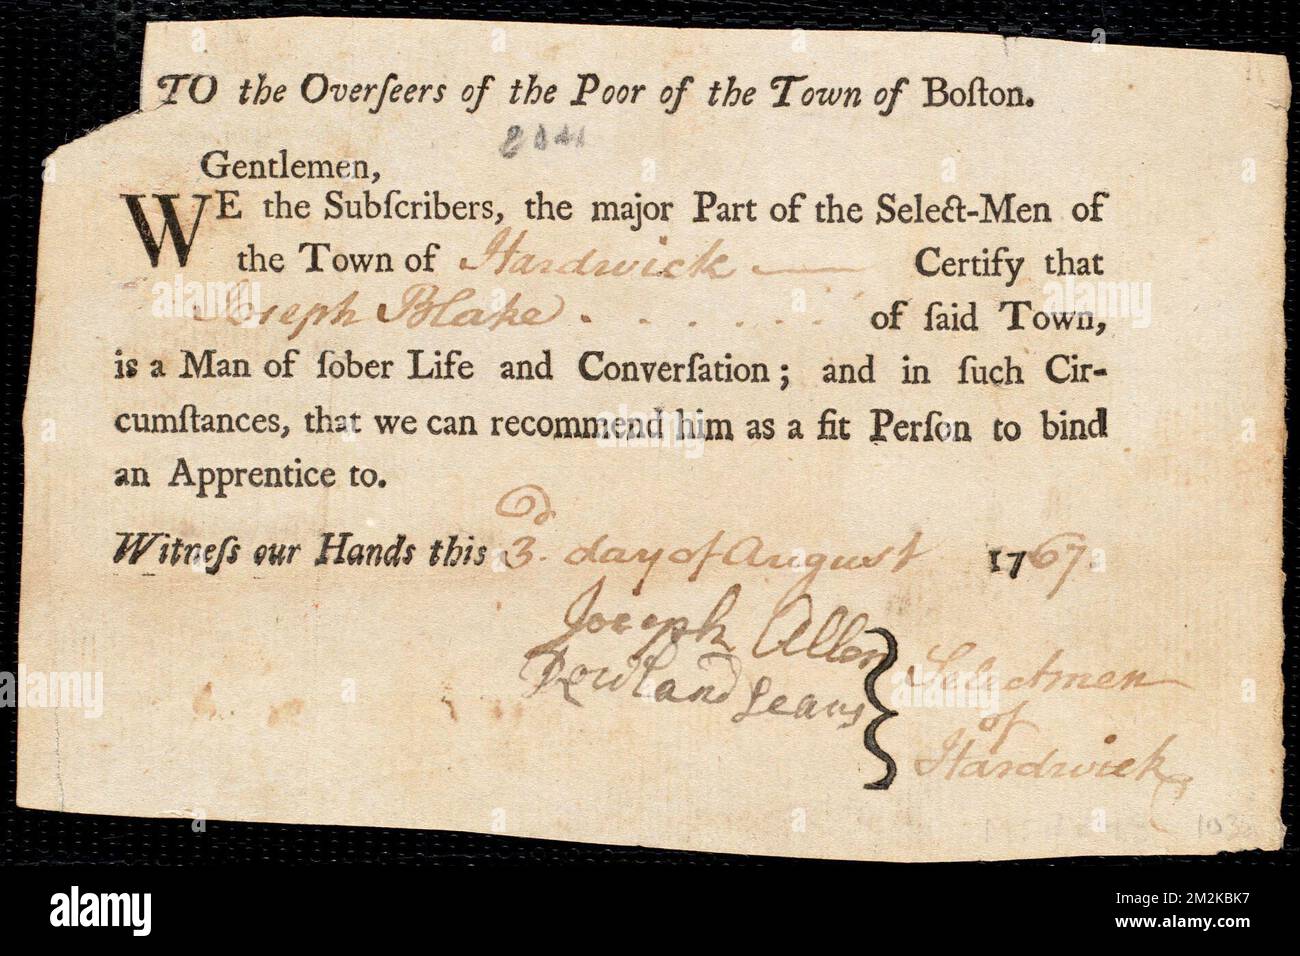 TO the Overſeers of the Poor of the Town of Boſton.
Gentlemen,
WE the Subſcribers, the major Part of the Select-Men of
the Town of Hardwick Certify that
Joseph Blake . . . . . . . of ſaid Town,
is a Man of ſober Life and Converſation; and in ſuch Cir-
cumſtances, that we can recommend him as a fit Perſon to bind
an Apprentice to.
Witneſs our Hands this 3d. day of August 1767.
Joseph Allen
Rowland Sears
Selectmen
of
Hardwick
alamy
Image ID: 2M2KBK7
www.alamy.com